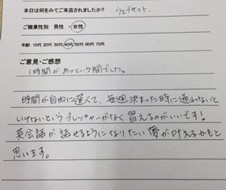 本日は何をみてご来店されましたか？ ウェブサイト
ご職業性別 男性・女性
年齢 10代 20代 30代 40代 50代 60代 70代
ご意見・ご感想
1時間があっという間でした。
時間が自由に選べて、毎週決まった時に通わないと
いけないというプレッシャーがなく習えるのがいいです!
英会話が話せるようになりたい夢が叶えるかもと
思います。